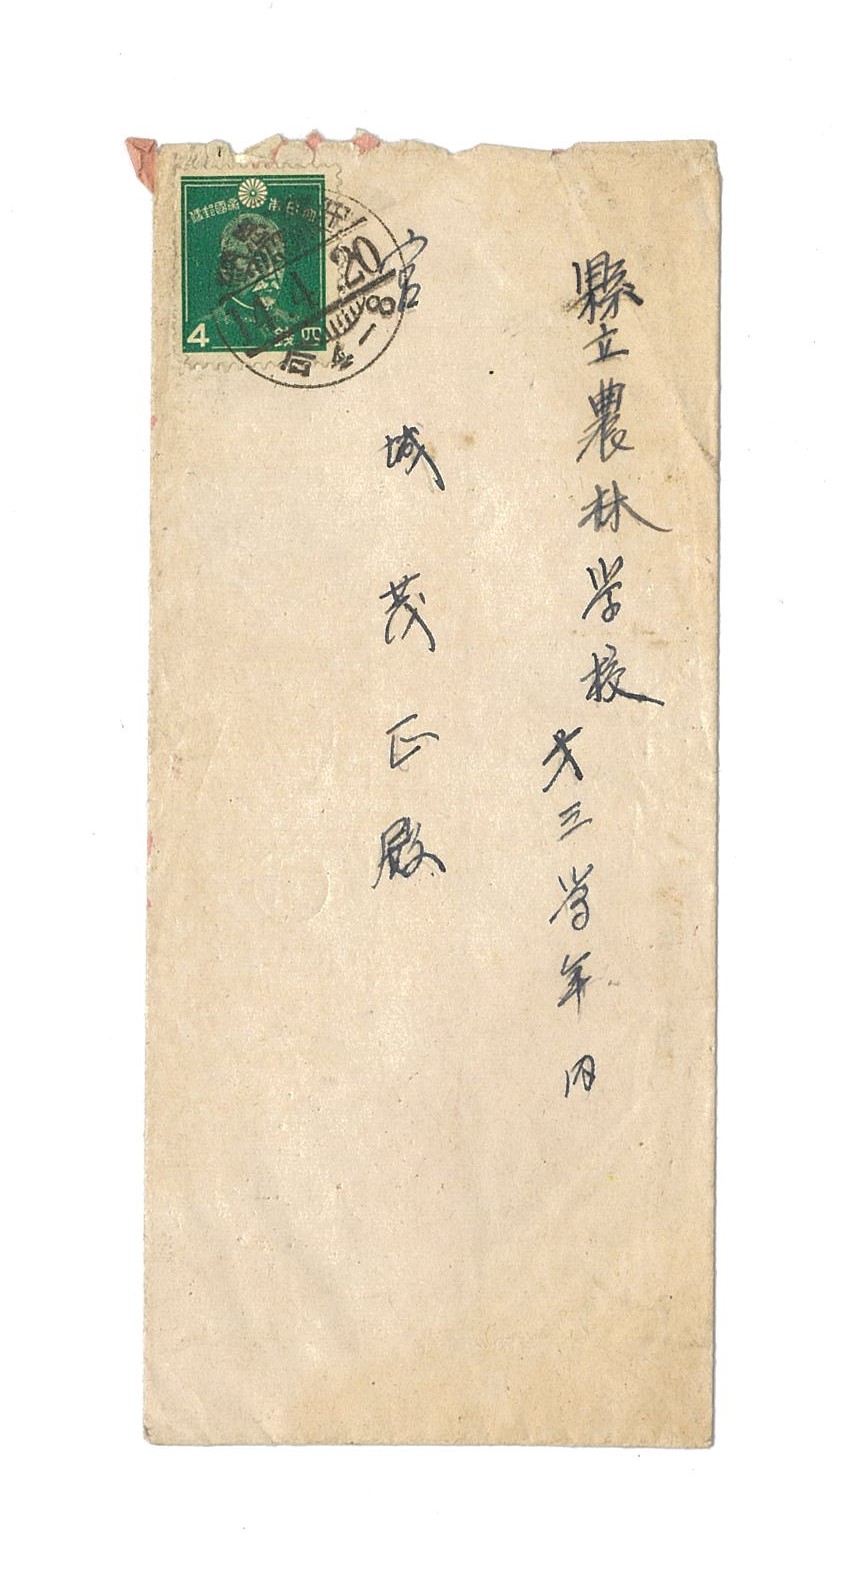 縣立農林学校
才三学年内
宮城茂正殿
大日本帝國郵便
4 四錢
14.4.20